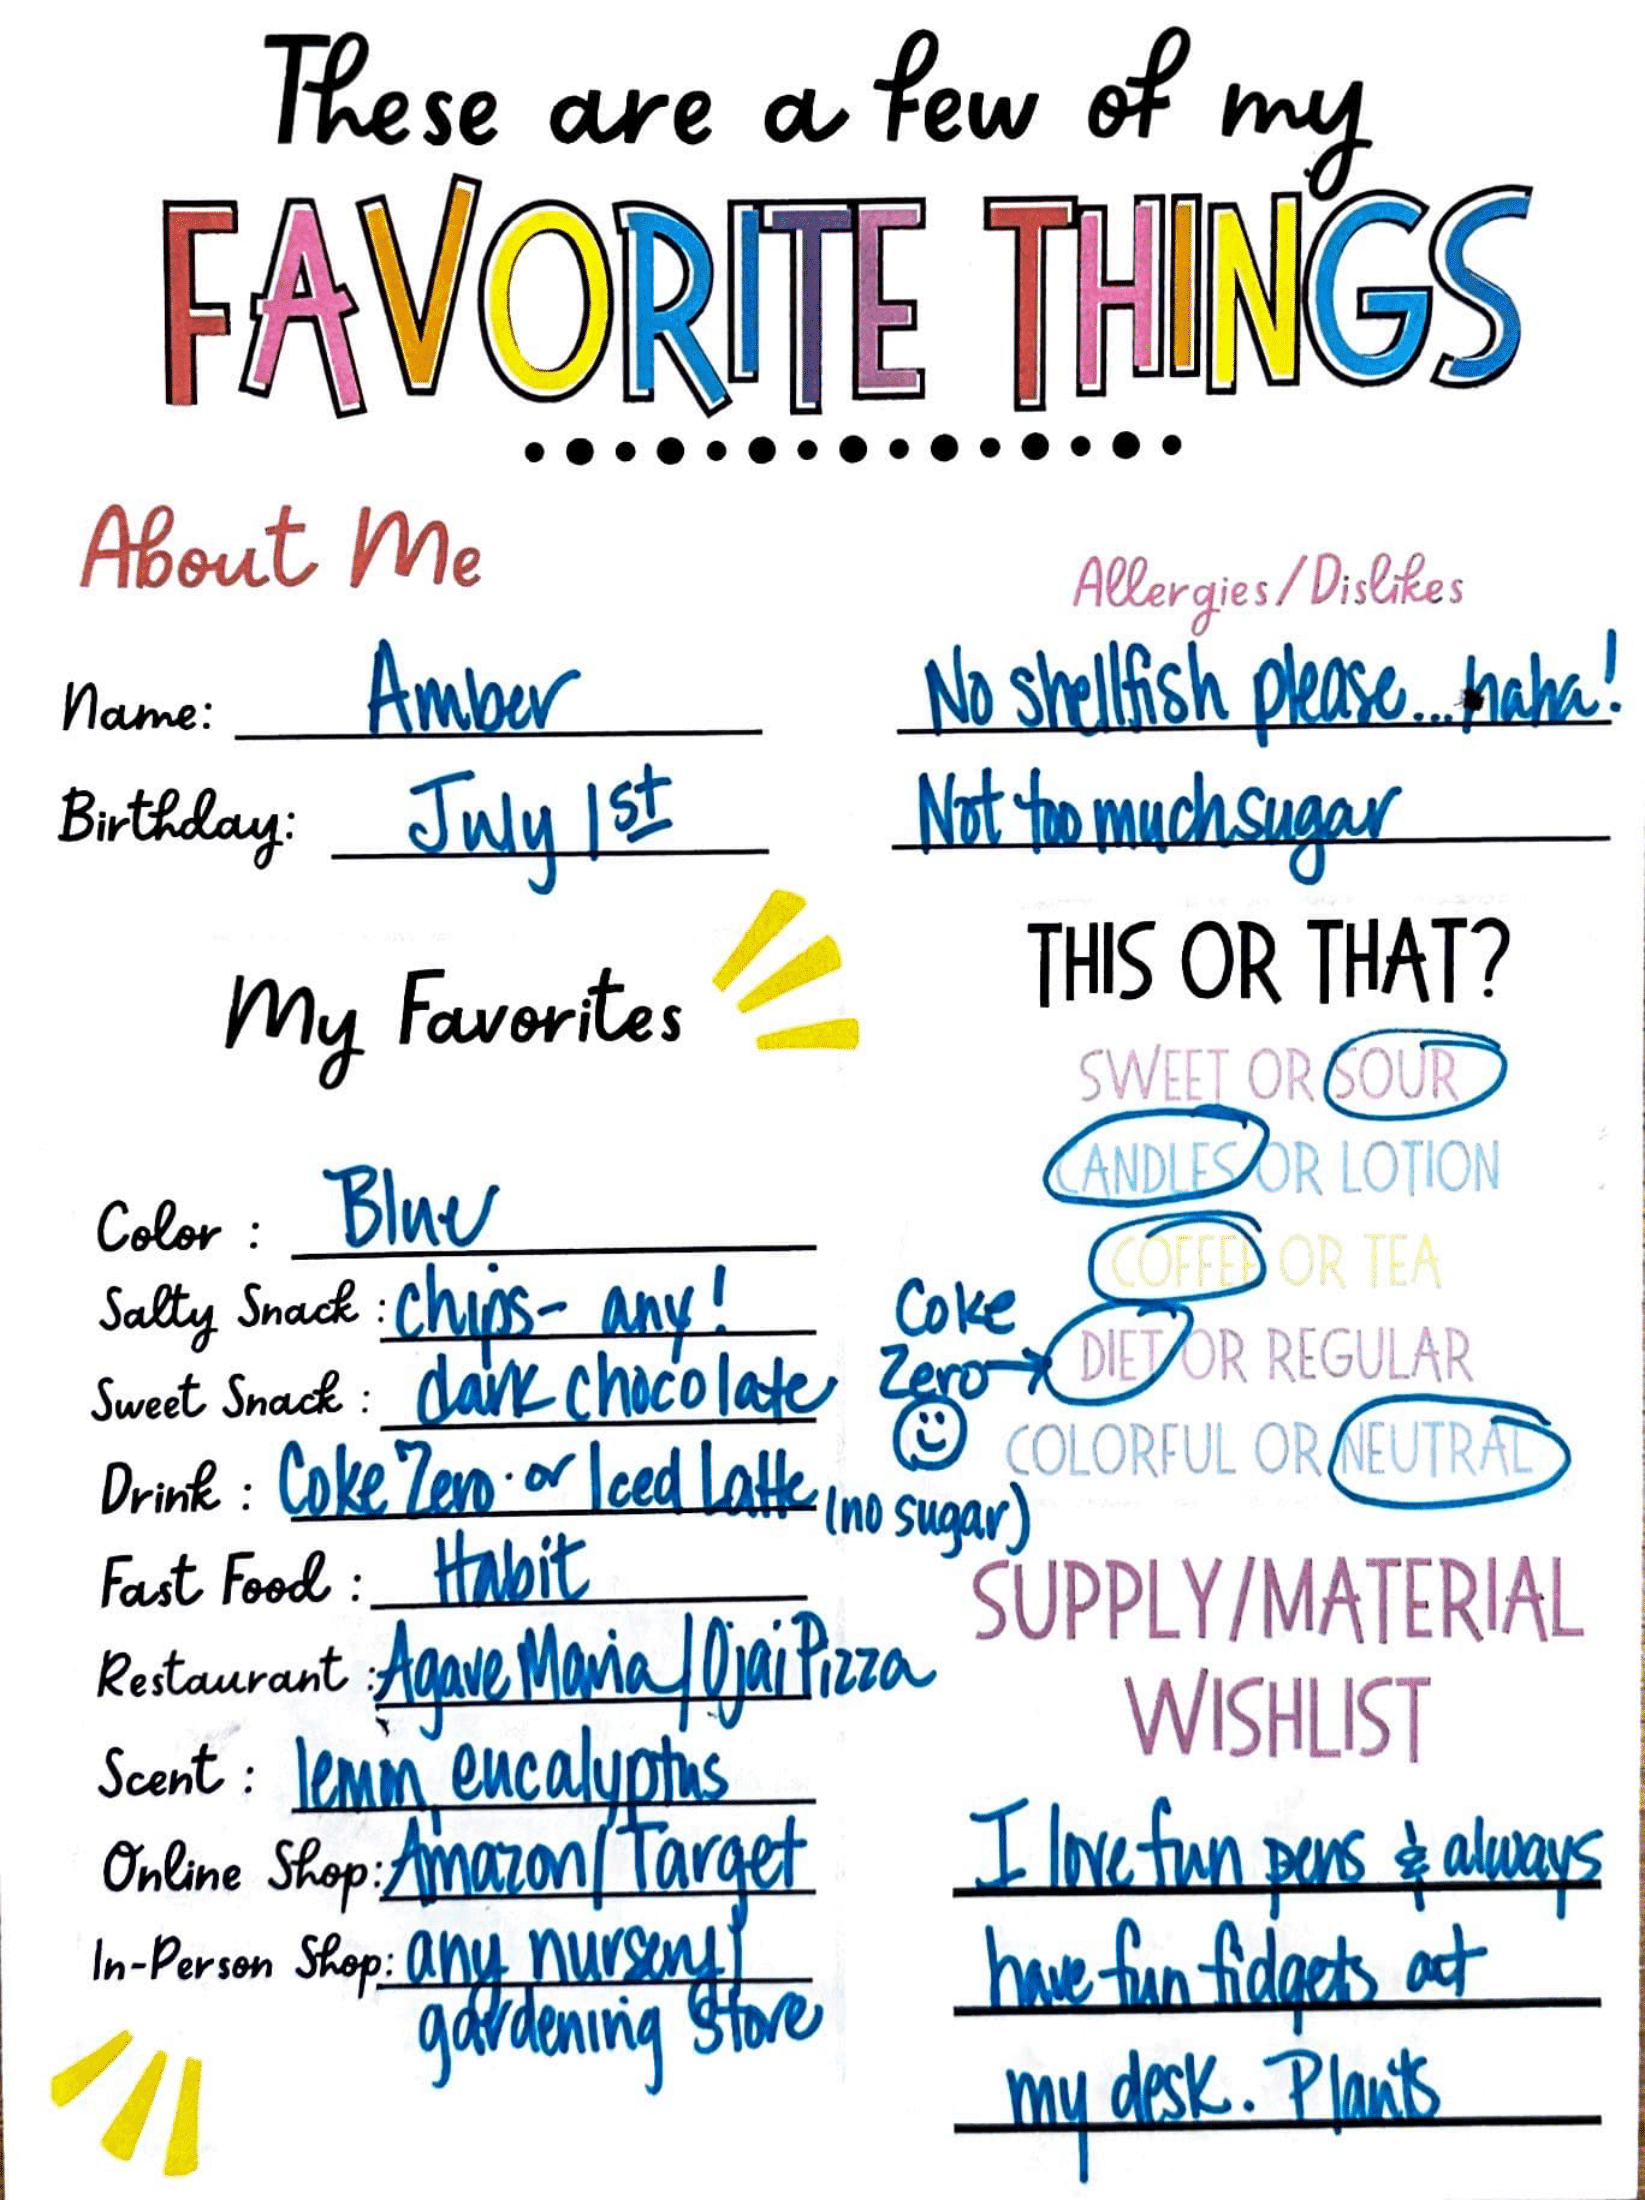 These are a few of my
FAVORITE THINGS
About Me
Name: Amber
Birthday: July 1st
Allergies/Dislikes
No shellfish please... haha!
Not too much sugar
My Favorites
Color : Blue
Salty Snack : chips- any!
Sweet Snack : dark chocolate
Drink : Coke Zero or Iced Latte (no sugar)
Fast Food : Habit
Restaurant : Agave Maria / Ojai Pizza
Scent : lemon eucalyptus
Online Shop: Amazon / Target
In-Person Shop: any nursery /
gardening store
THIS OR THAT?
SWEET OR SOUR
CANDLES OR LOTION
COFFEE OR TEA
Coke
Zero → DIET OR REGULAR
COLORFUL OR NEUTRAL
SUPPLY/MATERIAL
WISHLIST
I love fun pens & always
have fun fidgets at
my desk. Plants